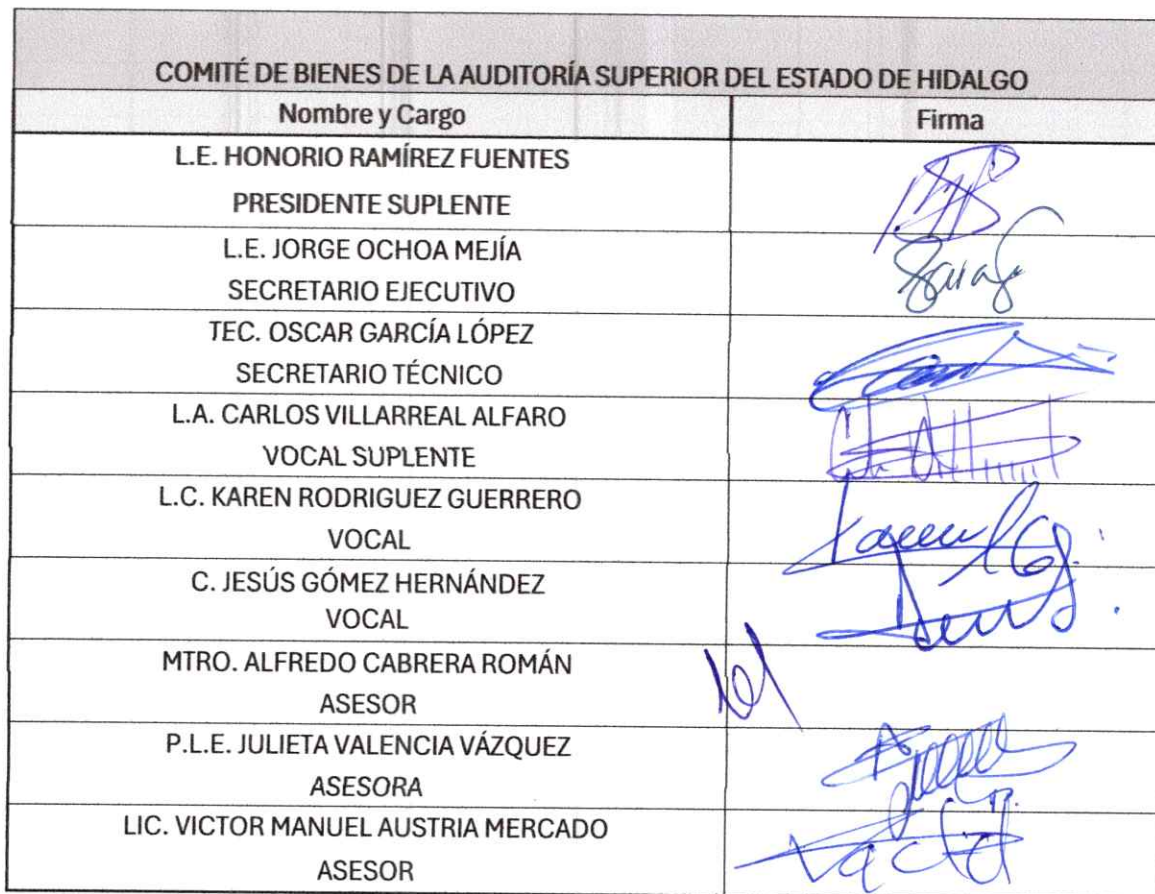 COMITÉ DE BIENES DE LA AUDITORÍA SUPERIOR DEL ESTADO DE HIDALGO
Nombre y Cargo Firma
L.E. HONORIO RAMÍREZ FUENTES
PRESIDENTE SUPLENTE
L.E. JORGE OCHOA MEJÍA
SECRETARIO EJECUTIVO
TEC. OSCAR GARCÍA LÓPEZ
SECRETARIO TÉCNICO
L.A. CARLOS VILLARREAL ALFARO
VOCAL SUPLENTE
L.C. KAREN RODRIGUEZ GUERRERO
VOCAL
C. JESÚS GÓMEZ HERNÁNDEZ
VOCAL
MTRO. ALFREDO CABRERA ROMÁN
ASESOR
P.L.E. JULIETA VALENCIA VÁZQUEZ
ASESORA
LIC. VICTOR MANUEL AUSTRIA MERCADO
ASESOR